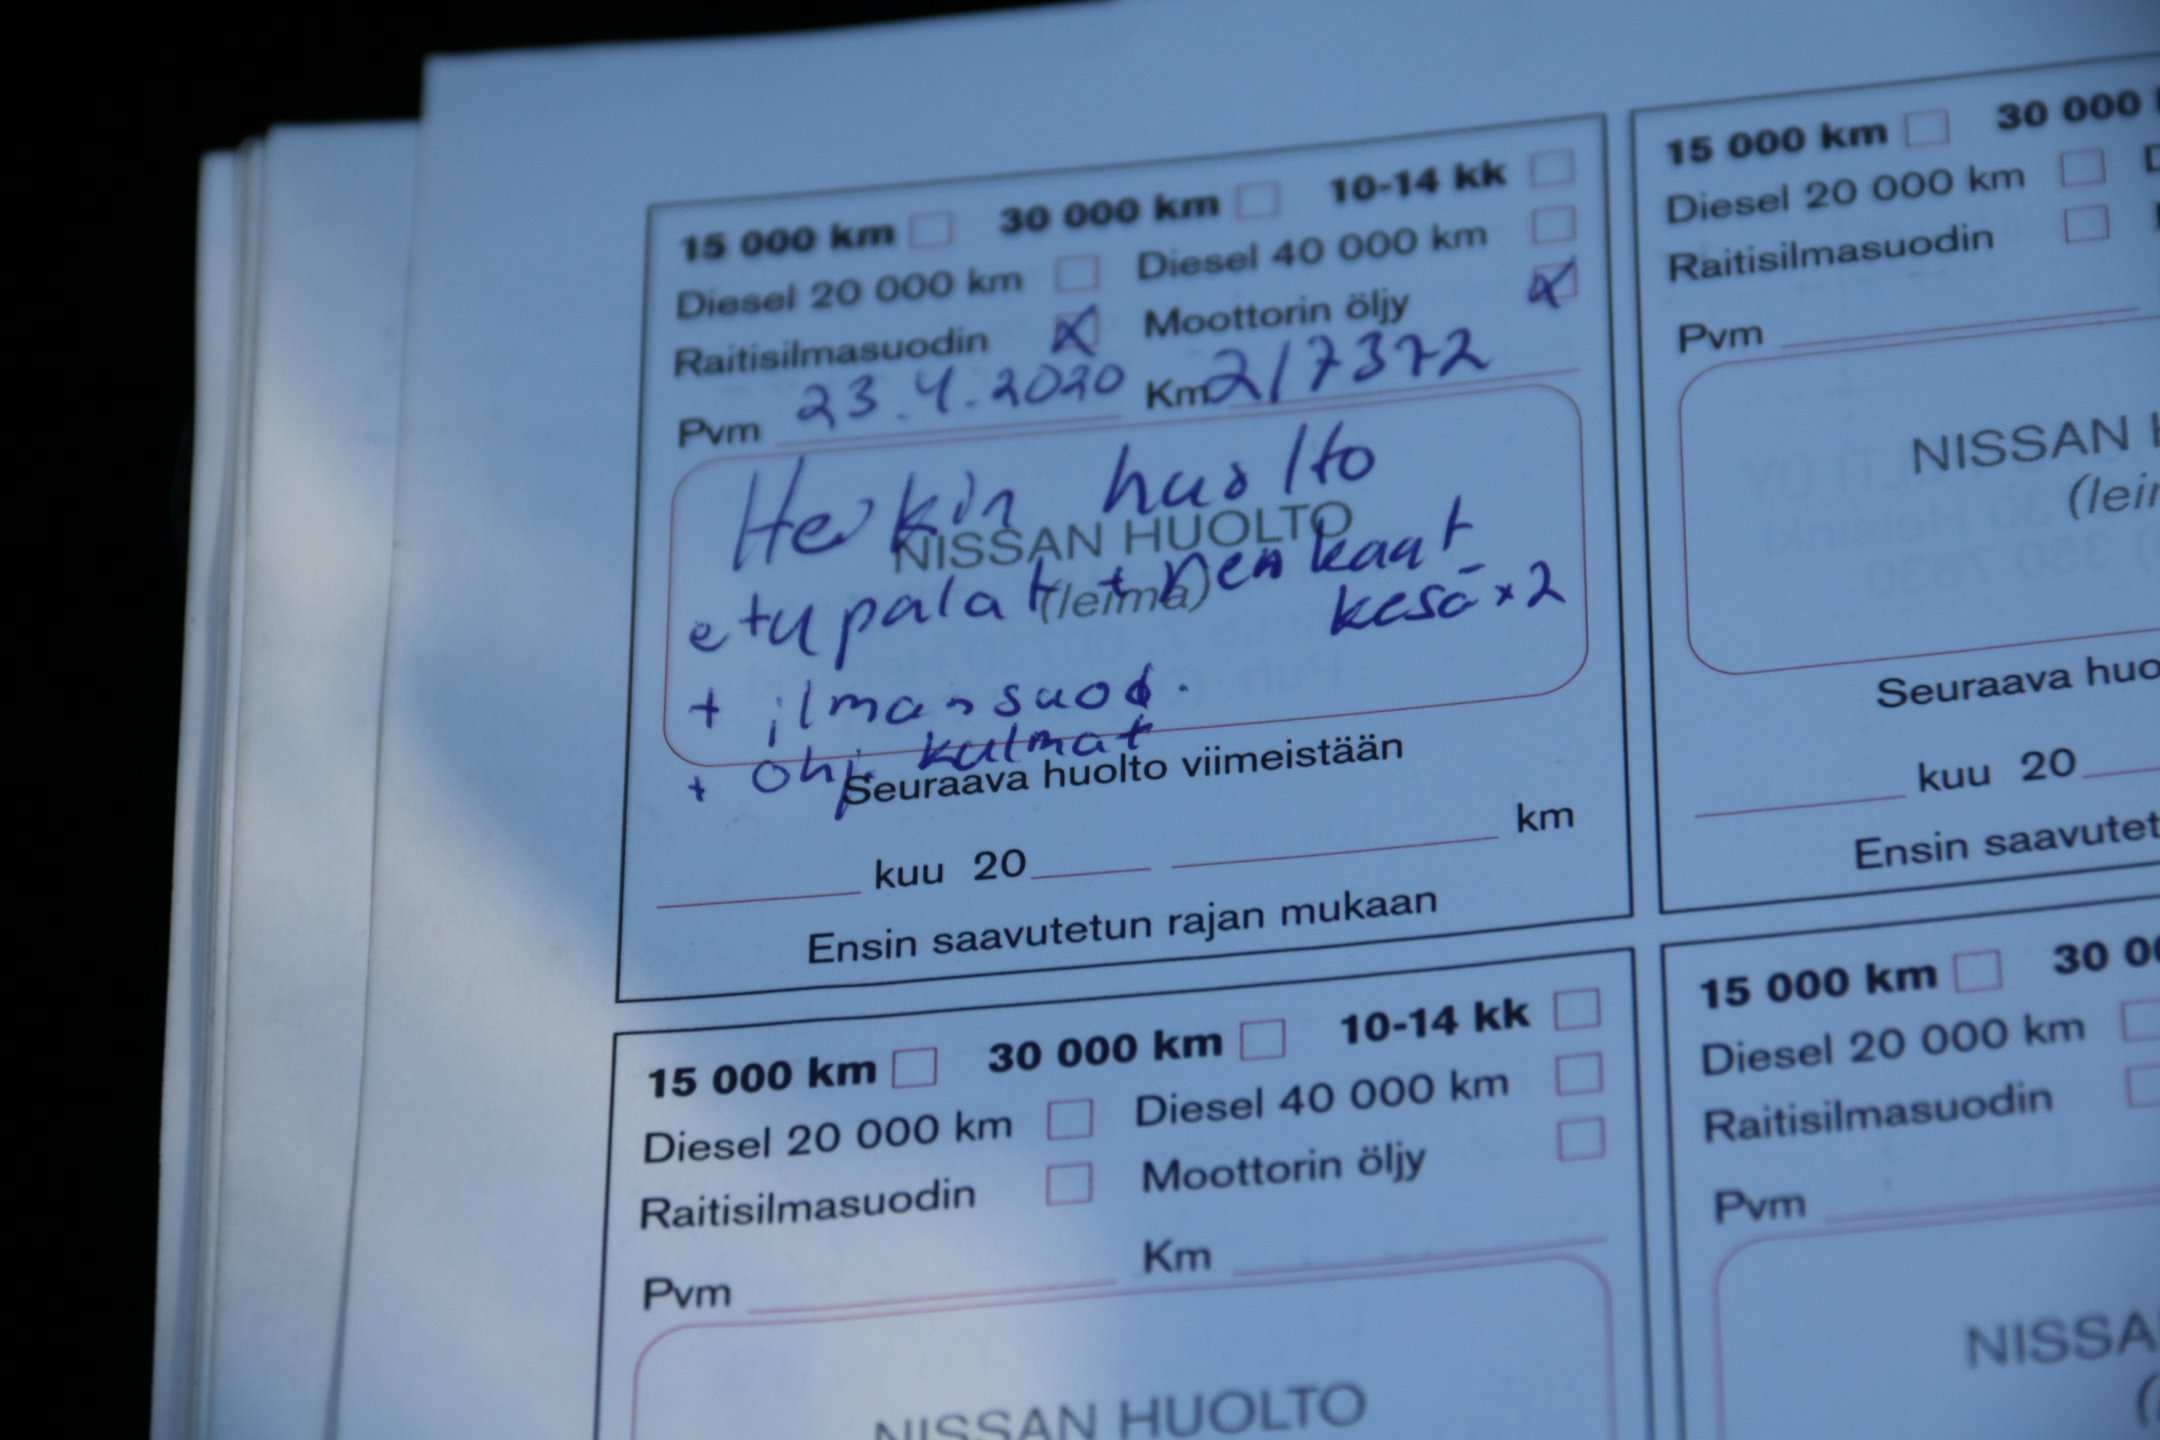 15 000 km 30 000 km 10-14 kk
Diesel 20 000 km Diesel 40 000 km
Raitisilmasuodin x Moottorin öljy x
Pvm 23.4.2020 Km 217372
huolto
NISSAN HUOLTO
(leima)
etupalat + renkaat
kesä x2
+ ilmansuod.
+ ohj. kulmat
Seuraava huolto viimeistään
kuu 20 km
Ensin saavutetun rajan mukaan
15 000 km 30 000
Diesel 20 000 km
Raitisilmasuodin
Pvm
NISSAN
Seuraava huo
kuu 20
Ensin saavutet
15 000 km 30 000 km 10-14 kk
Diesel 20 000 km Diesel 40 000 km
Raitisilmasuodin Moottorin öljy
Pvm Km
NISSAN HUOLTO
15 000 km 30 00
Diesel 20 000 km
Raitisilmasuodin
Pvm
NISSA